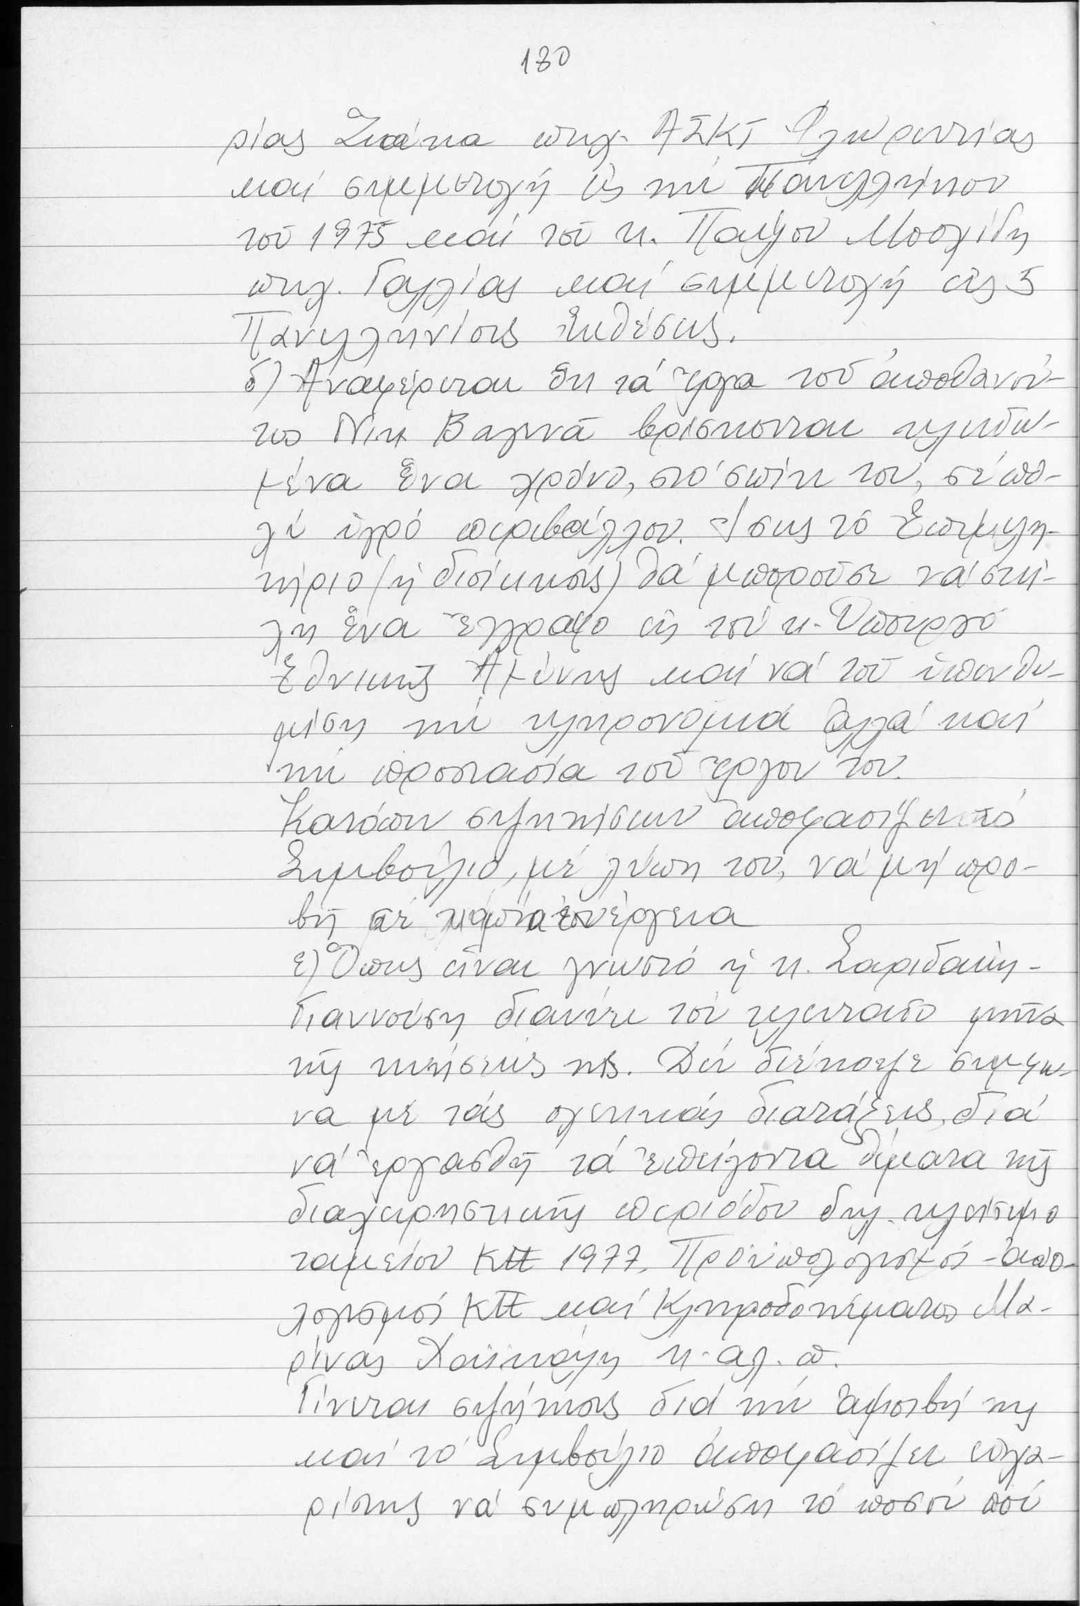 180
ρίας Ζιάκα πτυχ. ΑΣΚΤ Φλωρεντίας
καί συμμετοχή εἰς τήν Πανελλήνιον
τοῦ 1975 καί τοῦ κ. Παύλου Μοσχίδη
πτυχ. Γαλλίας καί συμμετοχή εἰς 5
Πανελληνίους Ἐκθέσεις.
δ) Ἀναφέρεται ὅτι τά ἔργα τοῦ ἀποθανού-
τος Νικ Βαγενᾶ βρίσκονται κλειδω-
μένα ἕνα χρόνο, στό σπίτι του, σέ πο-
λύ ὑγρό περιβάλλον. Ἴσως τό Ἐπιμελη-
τήριο (ἡ διοίκησις) θά μποροῦσε νά στεί-
λη ἕνα ἔγγραφο εἰς τόν κ. Ὑπουργό
Ἐθνικῆς Ἀμύνης καί νά τοῦ ὑπενθυ-
μίση τήν κληρονομιά ἀλλά καί
τήν προστασία τοῦ ἔργου του.
Κατόπιν συζητήσεων ἀποφασίζει τό
Συμβούλιο, μέ λύπη του, νά μή προ-
βῆ σέ καμμία ἐνέργεια
ε) Ὅπως εἶναι γνωστό ἡ κ. Σαριδάκη-
Γιαννούση διανύει τόν τελευταῖο μῆνα
τῆς κυήσεώς της. Δέν διέκοψε σύμφω-
να μέ τάς σχετικάς διατάξεις, διά
νά ἐργασθῆ τά ἐπείγοντα θέματα τῆς
διαχειριστικῆς περιόδου δηλ. κλείσιμο
ταμείου ΚΤΕ 1977, Προϋπολογισμοί - ἀπο-
λογισμοί ΚΤΕ καί Κληροδοτήματος Μα-
ρίνας κ. αλ. π.
Γίνεται συζήτησις διά τήν ἀμοιβή της
καί τό Συμβούλιο ἀποφασίζει εὐχα-
ρίστως νά συμπληρώση τό ποσόν πού